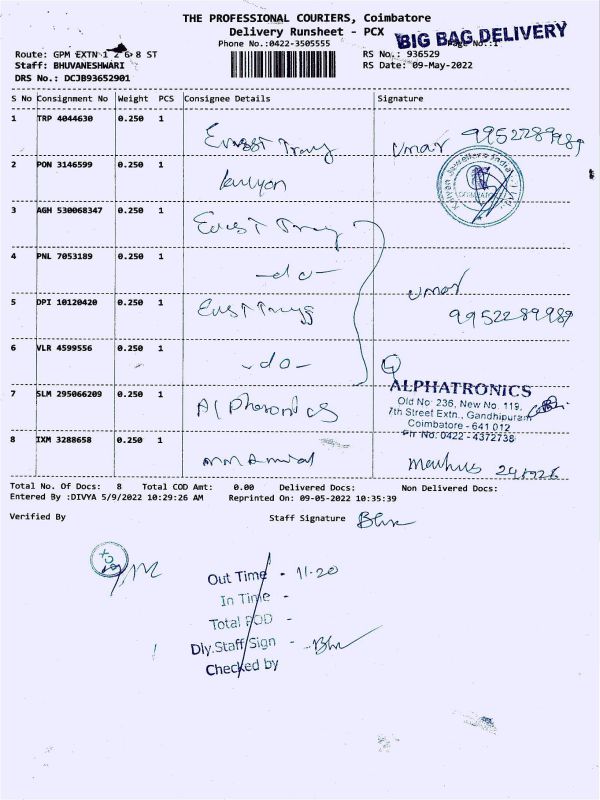 THE PROFESSIONAL COURIERS, Coimbatore
Delivery Runsheet - PCX
BIG BAG DELIVERY
Phone No.:0422-3505555
Page No.:1
Route: GPM EXTN 1 2 6 8 ST
RS No.: 936529
Staff: BHUVANESHWARI
RS Date: 09-May-2022
DRS No.: DCJB93652901
S No Consignment No Weight PCS Consignee Details Signature
1 TRP 4044630 0.250 1
Umar 9952289989
2 PON 3146599 0.250 1
3 AGH 530068347 0.250 1
4 PNL 7053189 0.250 1 -do-
Umar
5 DPI 10120420 0.250 1
9952289989
6 VLR 4599556 0.250 1 -do-
ALPHATRONICS
7 SLM 295066209 0.250 1
Old No: 236, New No. 119,
7th Street Extn., Gandhipuram
Coimbatore - 641 012
Ph No: 0422 - 4372738
8 IXM 3288658 0.250 1
Total No. Of Docs: 8 Total COD Amt: 0.00 Delivered Docs: Non Delivered Docs:
Entered By :DIVYA 5/9/2022 10:29:26 AM Reprinted On: 09-05-2022 10:35:39
Verified By Staff Signature
Out Time - 11-20
In Time -
Total POD -
Dly.Staff Sign -
Checked by